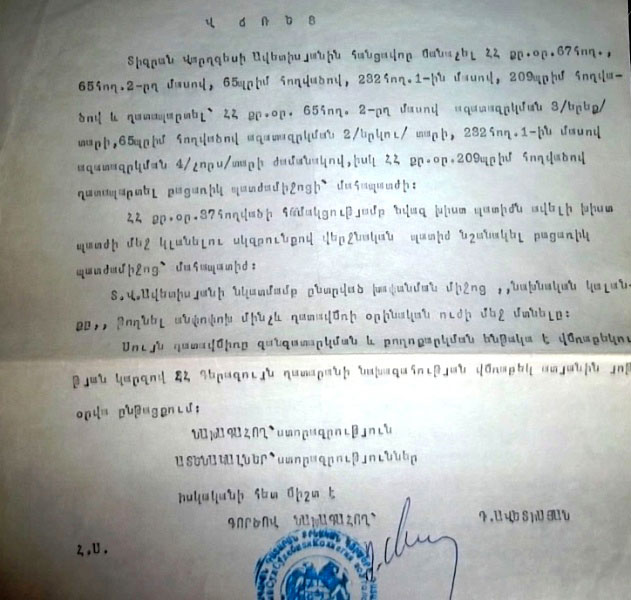 Վ Ճ Ռ Ե Ց
Տիգրան Վարդգեսի Ավետիսյանին հանցավոր ճանաչել ՀՀ քր.օր.67հոդ.,
65հոդ.2-րդ մասով, 65պրիմ հոդվածով, 232հոդ.1-ին մասով, 209պրիմ հոդվա-
ծով և դատապարտել՝ ՀՀ քր.օր. 65հոդ. 2-րդ մասով ազատազրկման 3/երեք/
տարի,65պրիմ հոդվածով ազատազրկման 2/երկու/ տարի, 232հոդ.1-ին մասով
ազատազրկման 4/չորս/տարի ժամանակով,իսկ ՀՀ քր.օր.209պրիմ հոդվածով
դատապարտել բացառիկ պատժամիջոցի՝ մահապատժի:
ՀՀ քր.օր.37հոդվածի համակցությամբ նվազ խիստ պատիժն ավելի խիստ
պատժի մեջ կլանելու սկզբունքով վերջնական պատիժ նշանակել բացառիկ
պատժամիջոց՝ մահապատիժ:
Տ.Վ.Ավետիսյանի նկատմամբ ընտրված խափանման միջոց ,,նախնական կալան-
քը,, թողնել անփոփոխ մինչև դատավճռի օրինական ուժի մեջ մտնելը:
Սույն դատավճիռը գանգատարկման և բողոքարկման ենթակա է վճռաբեկու
թյան կարգով ՀՀ Գերագույն դատարանի նախագահության վճռաբեկ ատյանին յոթ
օրվա ընթացքում:
ՆԱԽԱԳԱՀՈՂ՝ստորագրություն
ԱՏԵՆԱԿԱԼՆԵՐ՝ստորագրություններ
իսկականի հետ ճիշտ է
ԳՈՐԾՈՎ ՆԱԽԱԳԱՀՈՂ՝ Դ.ԱՎԵՏԻՍՅԱՆ
Հ.Ս.